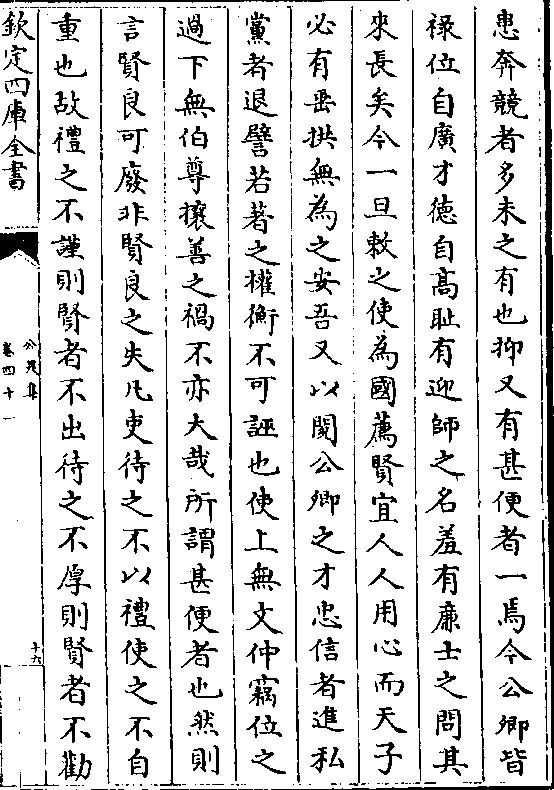 患奔競者多未之有也抑又有甚便者一焉今公卿皆
祿位自廣才德自髙耻有迎師之名羞有廉士之問其
來長矣今一旦敕之使為國薦賢宜人人用心而天子
必有垂拱無為之安吾又以閲公卿之才忠信者進私
黨者退譬若著之權衡不可誣也使上無文仲竊位之
過下無伯尊攘善之禍不亦大哉所謂甚便者也然則
言賢良可廢非賢良之失凡吏待之不以禮使之不自
重也故禮之不謹則賢者不出待之不厚則賢者不勸
欽定四庫全書
公是集
卷四十一
十六